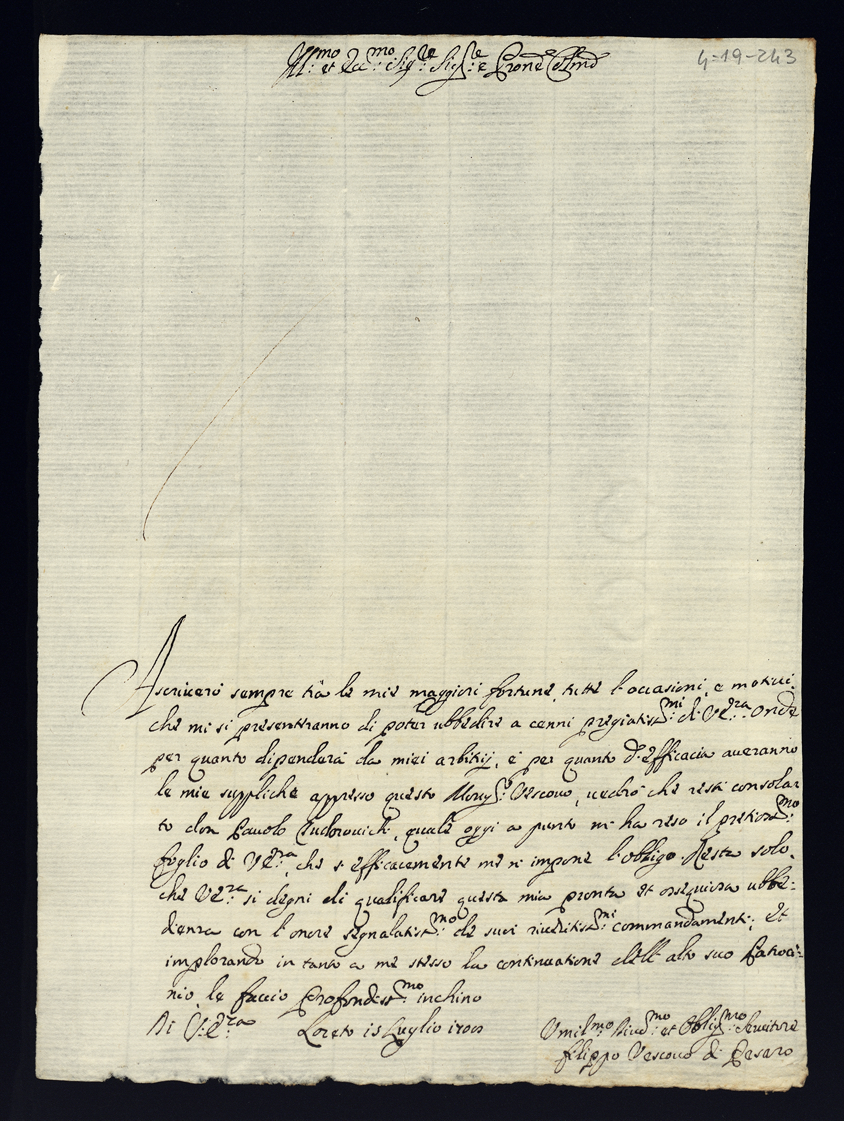 Ill:mo et Ecc:mo Sig:re Sig:re e Prone Colmo
4-19-243
Ascriverò sempre trà le mie maggiori fortune, tutte l'occasioni, e motivi:
che mi si presenteranno di poter ubbedire a cenni pregiatiss:mi di V.E:ra. Onde
per quanto dipenderà da miei arbitrij, e per quanto d'efficacia averanno
le mie suppliche appresso questo Monsig:re Vescovo, vedrò che resti consolar
to don Pavolo, quale oggi a punto mi ha reso il pretiosis:mo
foglio di V.E:ra, che s'efficacemente me n'impone l'obbligo. Resta solo,
che V.E:ra si degni di qualificare questa mia pronta et ossequiosa ubbe:
dienza con l'onore segnalatiss:mo de suoi riveritiss:mi commandamenti; et
implorando in tanto a me stesso la continuatione dell'alto suo Patroci:
nio, le faccio Profondiss:mo inchino
Di V:E:ra Loreto 15 Luglio 1700
Umil:mo Div:mo et Obblig:mo Servitore
Filippo Vescovo di Pesaro